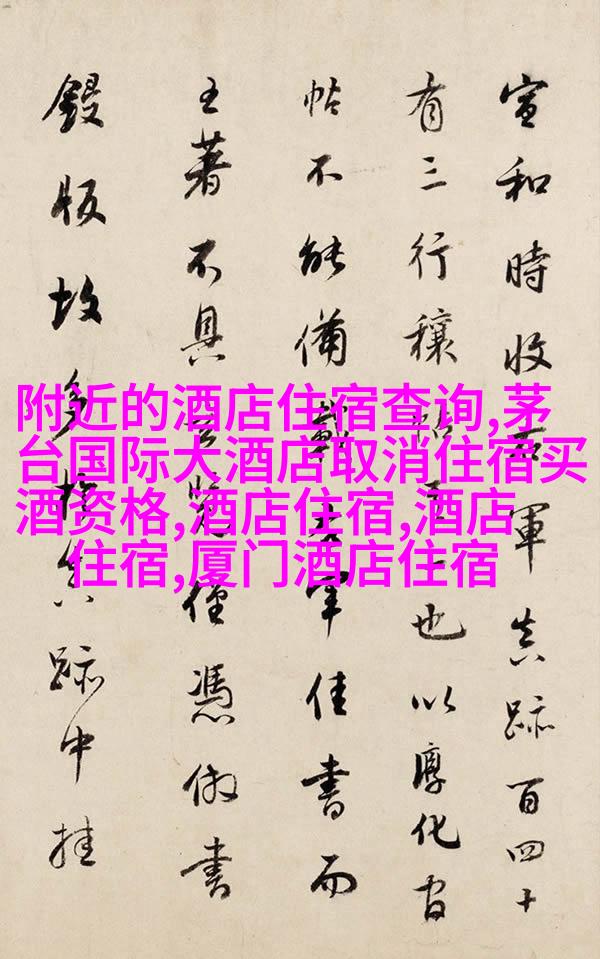 附近的酒店住宿查询,茅
台国际大酒店取消住宿买
酒资格,酒店住宿,酒店
住宿,厦门酒店住宿
宣和時收右軍真跡百四十
有三行穰帖一也以淳化官
帖不能備載右軍佳書而
王著不具僅憑倣書
鋟版故多於真跡中挂